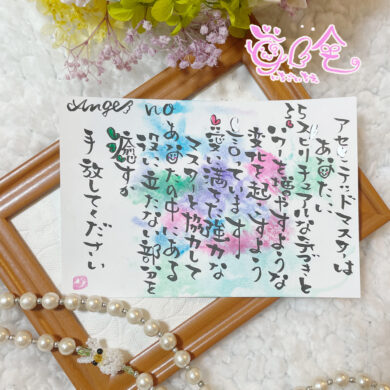 Anges no
55
アセンデッドマスターは
あなたに
スピリチュアルな気づきと
パワーを増やすような
変化を起こすよう
言っています
愛に満ちた強力な
マスターと協力して
あなたの中にある
役に立たない部分を
癒すか
手放してください